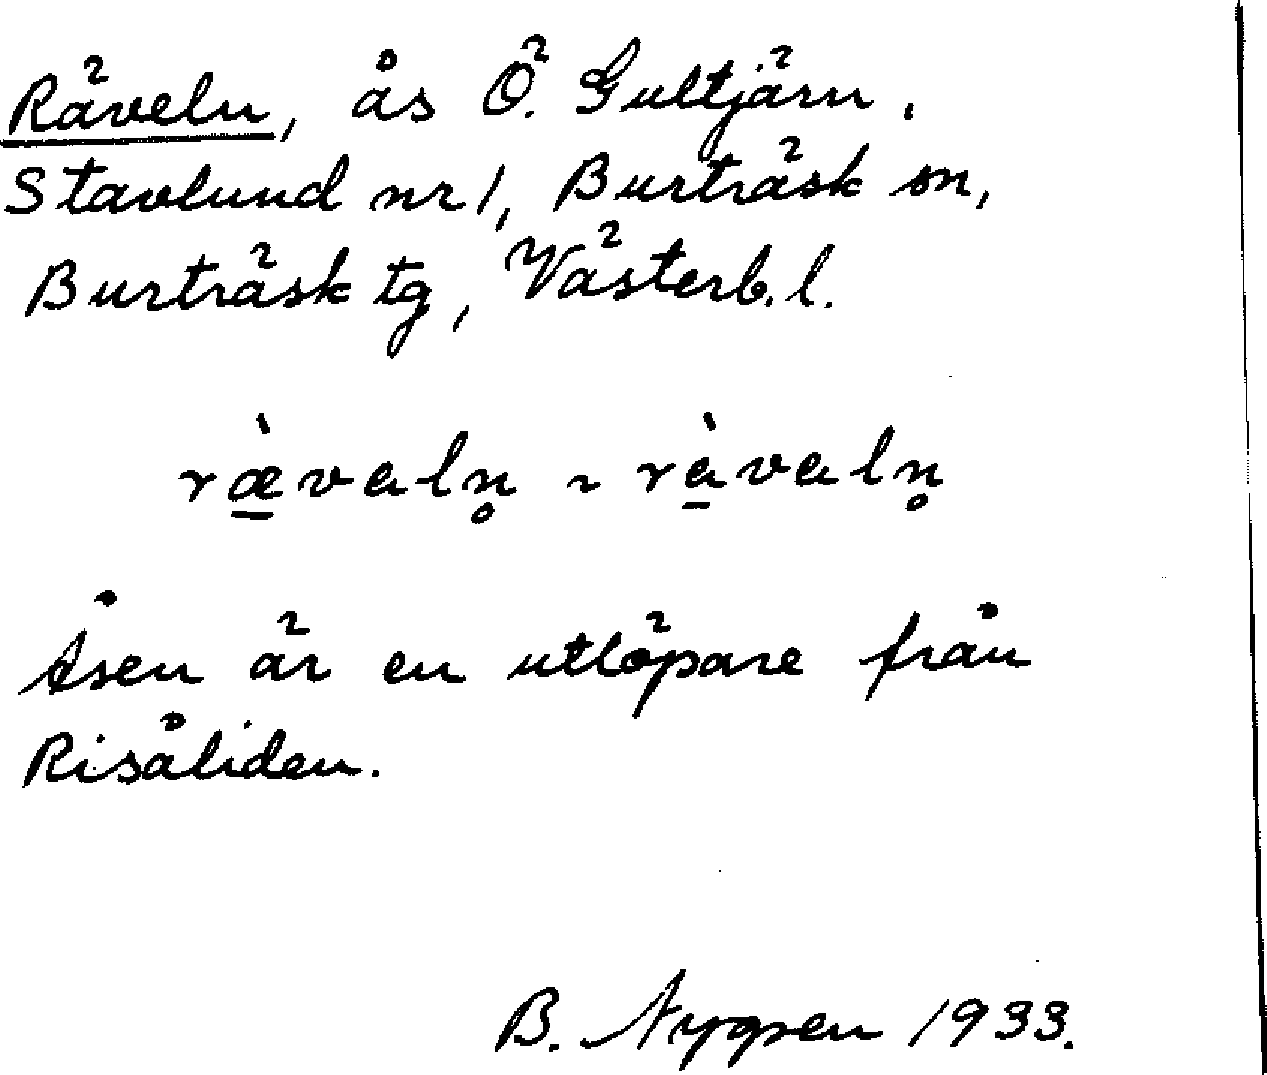 Räveln, ås Ö. Gultjärn.
Stavlund nr 1, Burträsk sn,
Burträsk tg, Västerb. l.
ræ̠̀valn̥ ~ rà̠valn̥
Åsen är en utlöpare från
Risåliden.
B. Nygren 1933.